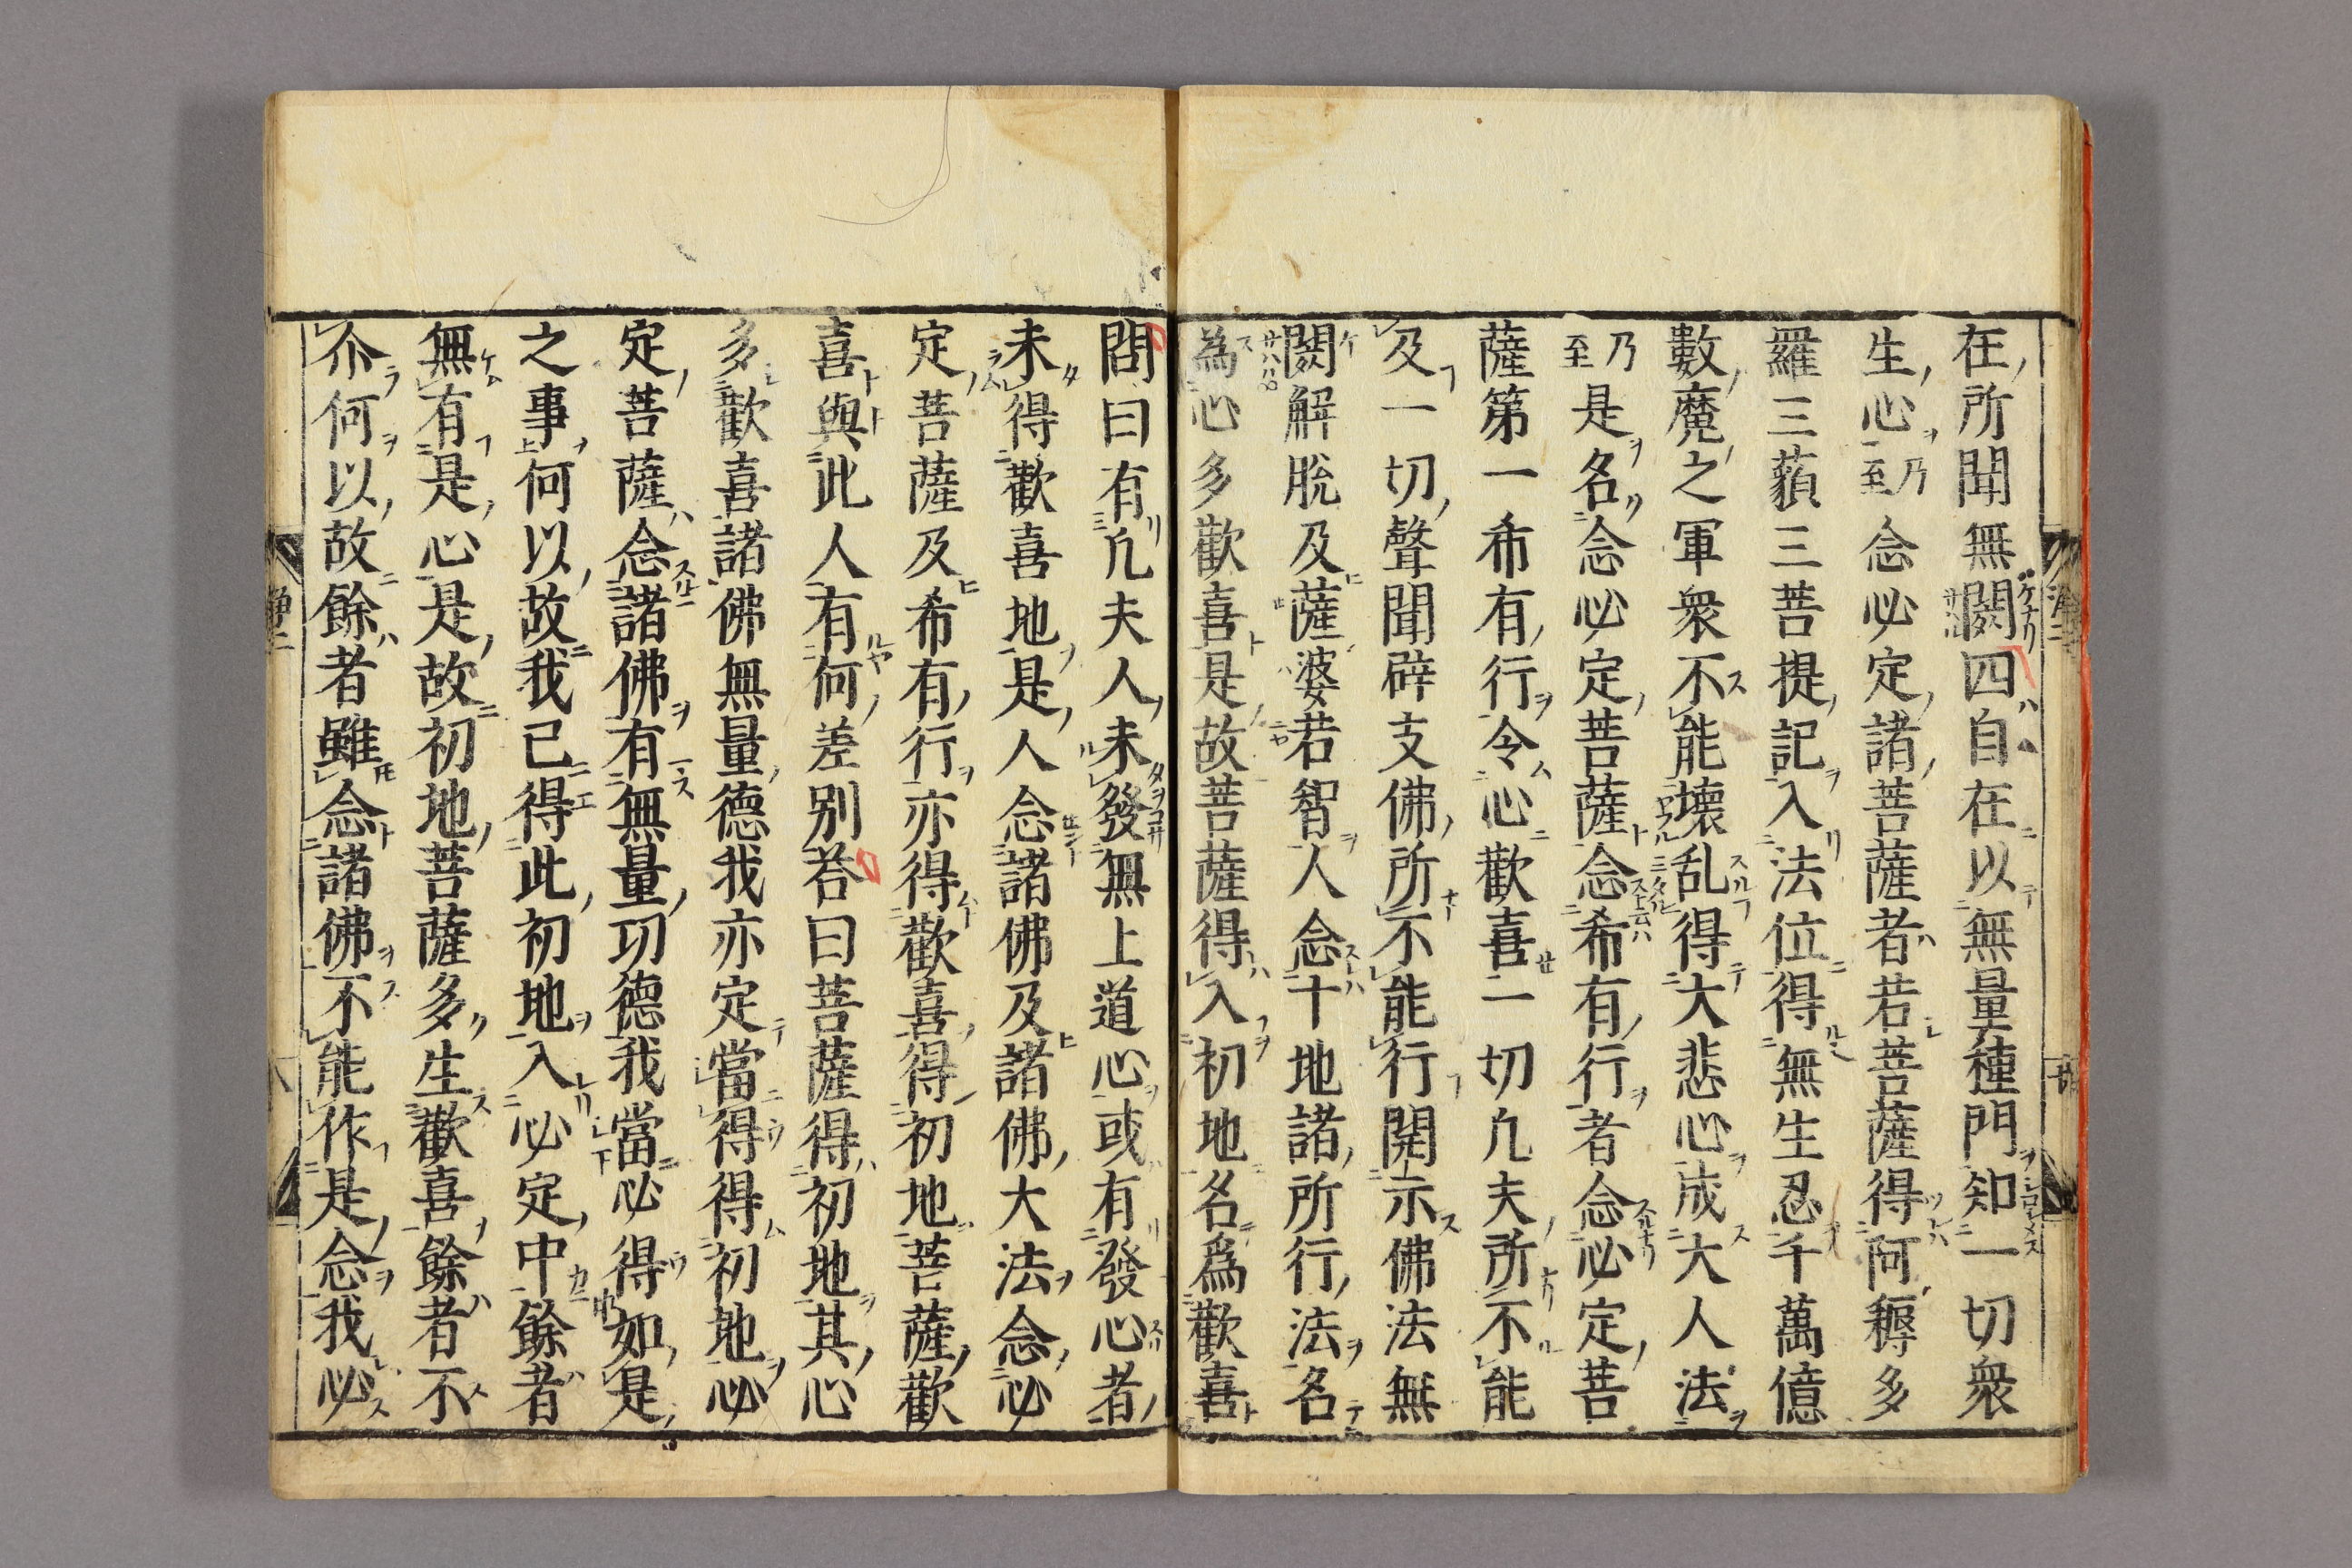 在所聞無閡四自在以無量種門知一切衆
生心乃至念必定諸菩薩者若菩薩得阿耨多
羅三藐三菩提記入法位得無生忍千萬億
數魔之軍衆不能壊乱得大悲心成大人法
乃至是名念必定菩薩念希有行者念必定菩
薩第一希有行令心歡喜一切凡夫所不能
及一切聲聞辟支佛所不能行開示佛法無
閡解脫及薩婆若智人念十地諸所行法名
為心多歡喜是故菩薩得入初地名爲歡喜
問曰有凡夫人未發無上道心或有發心者
未得歡喜地是人念諸佛及諸佛大法念必
定菩薩及希有行亦得歡喜得初地菩薩歡
喜與此人有何差别荅曰菩薩得初地其心
多歡喜諸佛無量德我亦定當得得初地必
定菩薩念諸佛有無量功德我當必得如是
之事何以故我已得此初地入必定中餘者
無有是心是故初地菩薩多生歡喜餘者不
尒何以故餘者雖念諸佛不能作是念我必